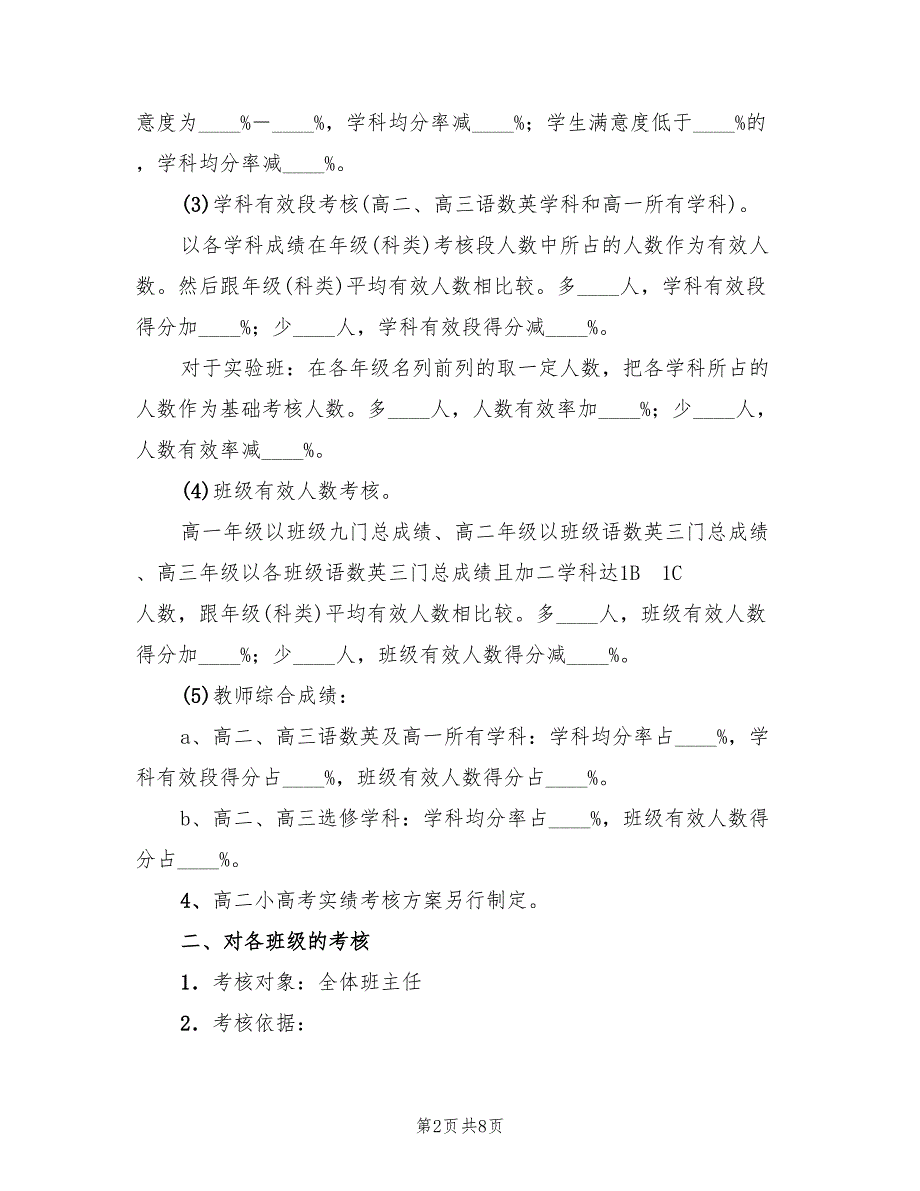 意度为____%－____%，学科均分率减____%；学生满意度低于____%的
，学科均分率减____%。
(3)学科有效段考核(高二、高三语数英学科和高一所有学科)。
以各学科成绩在年级(科类)考核段人数中所占的人数作为有效人
数。然后跟年级(科类)平均有效人数相比较。多____人，学科有效段
得分加____%；少____人，学科有效段得分减____%。
对于实验班：在各年级名列前列的取一定人数，把各学科所占的
人数作为基础考核人数。多____人，人数有效率加____%；少____人，
人数有效率减____%。
(4)班级有效人数考核。
高一年级以班级九门总成绩、高二年级以班级语数英三门总成绩
、高三年级以各班级语数英三门总成绩且加二学科达1B  1C
人数，跟年级(科类)平均有效人数相比较。多____人，班级有效人数
得分加____%；少____人，班级有效人数得分减____%。
(5)教师综合成绩：
a、高二、高三语数英及高一所有学科：学科均分率占____%，学
科有效段得分占____%，班级有效人数得分占____%。
b、高二、高三选修学科：学科均分率占____%，班级有效人数得
分占____%。
4、高二小高考实绩考核方案另行制定。
二、对各班级的考核
1．考核对象：全体班主任
2．考核依据：
第2页共8页